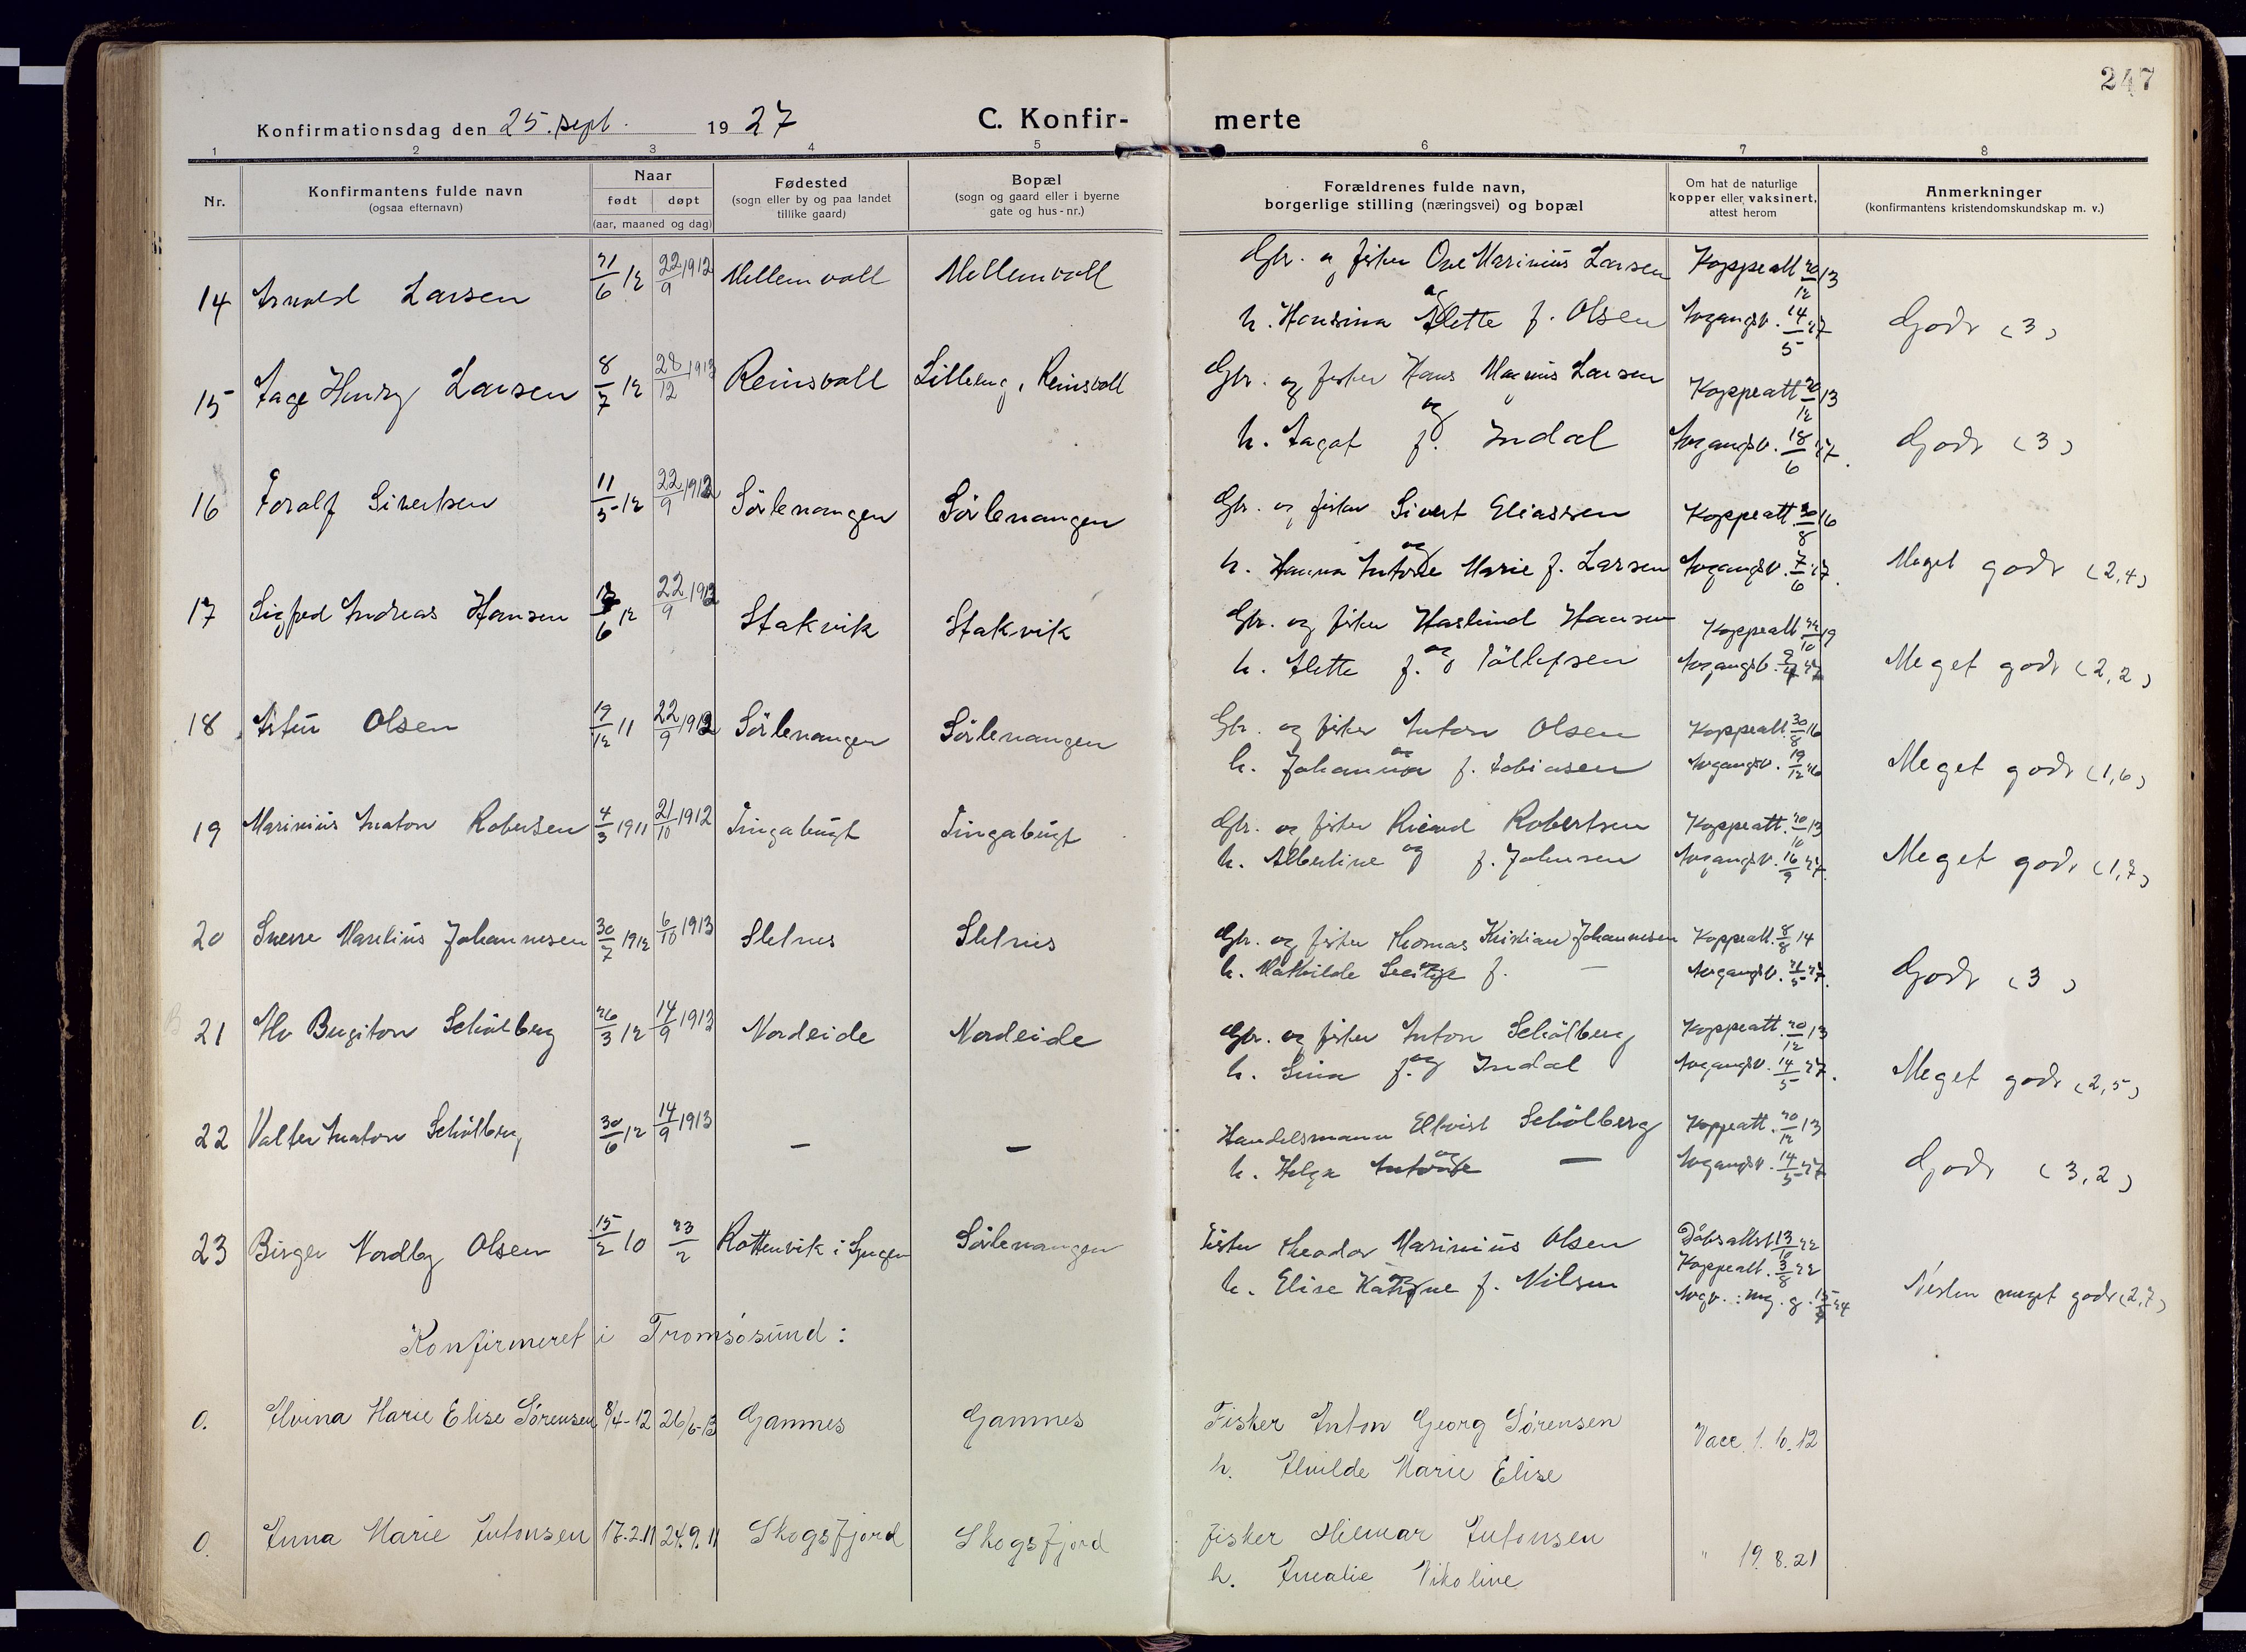 247
Konfirmationsdag den 25. sept. 1927
C. Konfirmerte
1 2 3 4 5 6 7 8
Nr.
Konfirmantens fulde navn
(ogsaa efternavn)
Naar
født døpt
(aar, maaned og dag)
Fødested
(sogn eller by og paa landet
tillike gaard)
Bopæl
(sogn og gaard eller i byerne
gate og hus-nr.)
Forældrenes fulde navn,
borgerlige stilling (næringsvei) og bopæl
Om hat de naturlige
kopper eller vaksinert,
attest herom
Anmerkninger
(konfirmantens kristendomskundskap m. v.)
14 Arnold Larsen 21/6 12 22/9 1912 Mellemvoll Mellemvoll Gbr. og fisker Ove Marinius Larsen Koppeatt 20/12 13
og
h. Hansina Alette f. Olsen Avgangsv. 14/5 27 Godt (3)
15 Aage Henry Larsen 8/7 12 28/12 1913 Reinsvoll Lilleeng, Reinsvoll Gbr. og fisker Hans Magnus Larsen Koppeatt 20/12 13
og
h. Aagot f. Indal Avgangsv. 18/6 27. Godt (3)
16 Toralf Sivertsen 11/5 12 22/9 1912 Sörlenangen Sörlenangen Gbr. og fisker Sivert Eliassen Koppeatt. 30/8 16
og
h. Hanna Antone Marie f. Larsen Avgangsv. 7/6 27. Meget godt (2,4)
17 Sigfred Andreas Hansen 6 12 22/9 1912 Stakvik Stakvik Gbr. og fisker Haslund Hansen Koppeatt 22/10 19
og
h. Alette f. Töllefsen Avgangsv. 27 Meget godt (2,2)
18 Artur Olsen 19/12 11 22/9 1912 Sörlenangen Sörlenangen Gbr. og fisker Anton Olsen Koppeatt. 30/8 16
og
h. Johanna f. Tobiasen Avgangsv. 19/12 26 Meget godt (1,6)
19 Marinius Anaton Robersen 4/3 1911 21/10 1912 Tingabugt Tingabugt Gbr. og fisker Ricard Robertsen Koppeatt. 20/10 13
h. Albertine og f. Johnsen Avgangsv. 16/9 27. Meget godt (1,7)
20 Sverre Marelius Johannesen 30/7 1912 6/10 1913 Sletnes Sletnes Gbr. og fisker Thomas Kristian Johannesen Koppeatt. 8/8 14
h. Mathilde f. — Avgangsv. 21/5 27. Godt (3)
21 Alv Bergiton Schölberg 26/3 12 14/9 1913 Nordeide Nordeide Gbr. og fisker Anton Schölberg Koppeatt. 20/12 13
og
h. Sina f. Indal Avgangsv. 14/5 27. Meget godt (2,5)
22 Valter Anaton Schölberg 30/6 12 14/9 1913 — — Handelsmann Elkvist Schölberg Koppeatt. 20/12 13
og
h. Helga Antonie — Avgangsv. 14/5 27 Godt (3,2)
23 Birger Nordby Olsen 15/2 10 23/2 Rottenvik i Lyngen Sörlenangen Fisker Theodor Marinius Olsen Dåbsattest 13/10 22
Koppeatt. 3/8 22
og
h. Elise Katrine f. Nilsen Avgv.: mg. g. 24 Nesten meget godt (2,7)
Konfirmeret i Tromsøsund:
0. Alvina Marie Elise Sørensen 8/4-12 26/6-13 Gamnes Gamnes Fisker Anton Georg Sørensen Vacc. 1.10.12
h. Alvilde Marie Elise
0. Anna Marie Antonsen 17.2.11 24.9.11 Skogsfjord Skogsfjord Fisker Hilmar Antonsen " 19.8.21
h. Amalie Nikoline